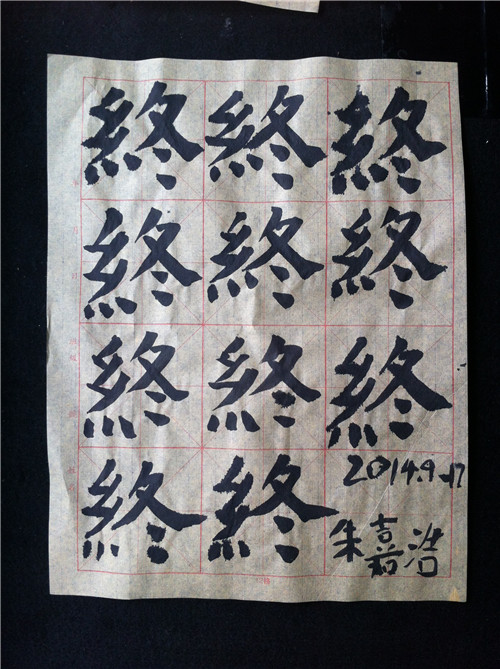 終終終
終終終
終終終
終終
2014.9.17
朱嘉浩